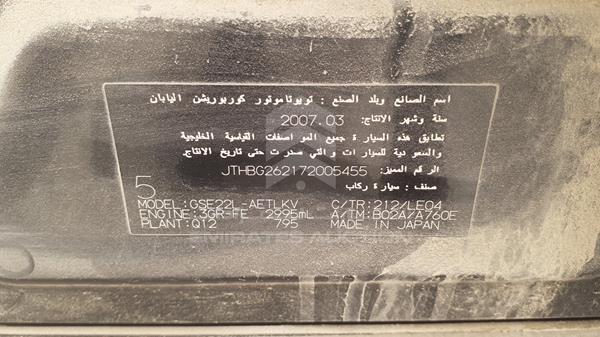 اسم الصانع وبلد الصنع : تويوتا موتور كوربوريشن اليابان
سنة وشهر الانتاج: 2007.03
تطابق هذه السيارة جميع المواصفات القياسية الخليجية
والسعودية للسيارات والتي صدرت حتى تاريخ الانتاج.
الرقم المميز: JTHBG262172005455
صنف : سيارة ركاب
5
MODEL:GSE22L-AETLKV C/TR:212/LE04
ENGINE:3GR-FE 2995mL A/TM:B02A/A760E
PLANT:Q12 795 MADE IN JAPAN
EMIRATES AUCTION